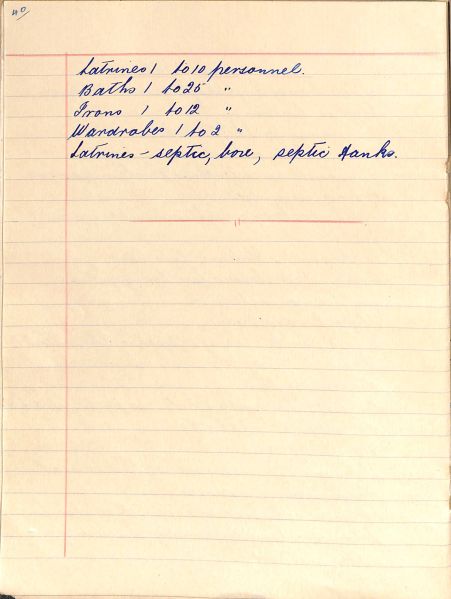 40
Latrines 1 to 10 personnel.
Baths 1 to 25 "
Irons 1 to 12 "
Wardrobes 1 to 2 "
Latrines - septic, bore, septic tanks.